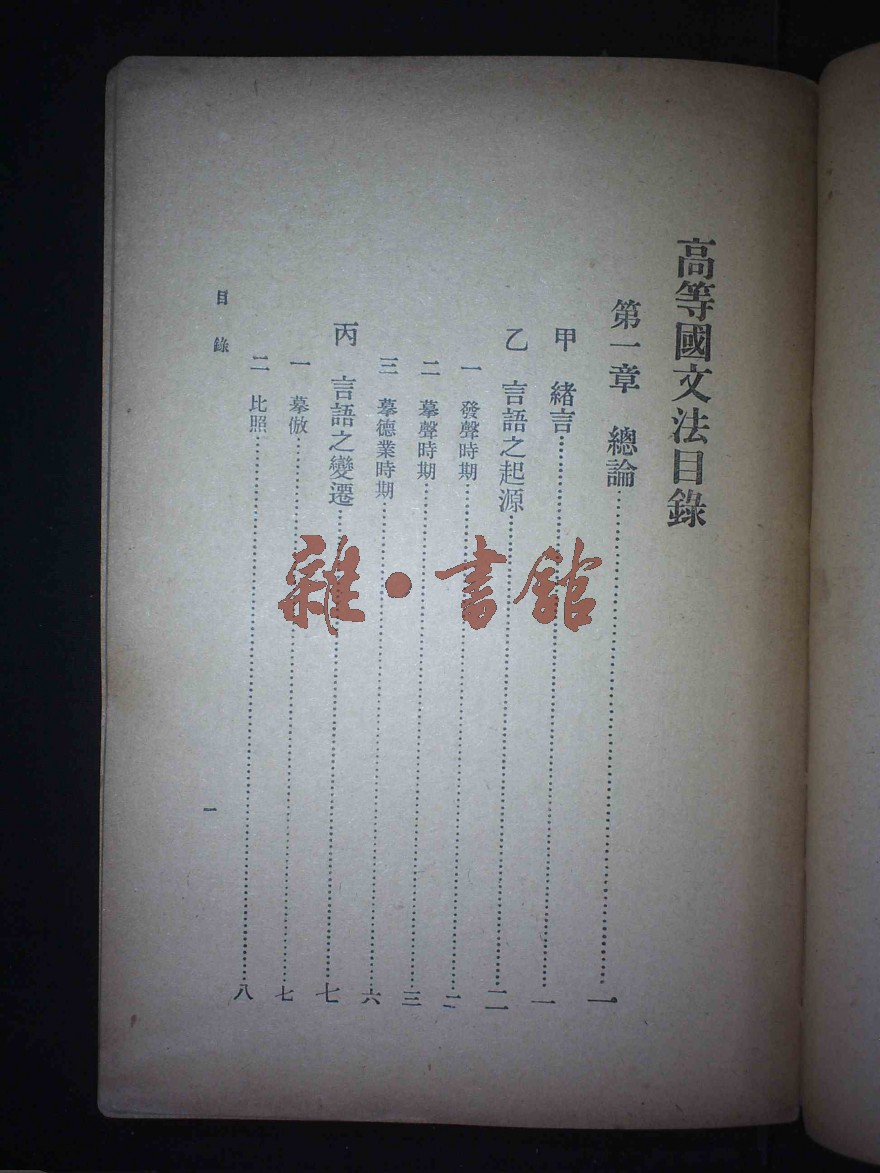 高等國文法目錄
第一章 總論……一
甲 緒言……一
乙 言語之起源……二
一 發聲時期……二
二 摹聲時期……三
三 摹德業時期……六
丙 言語之變遷……七
一 摹倣……七
二 比照……八
目錄 一
雜·書館